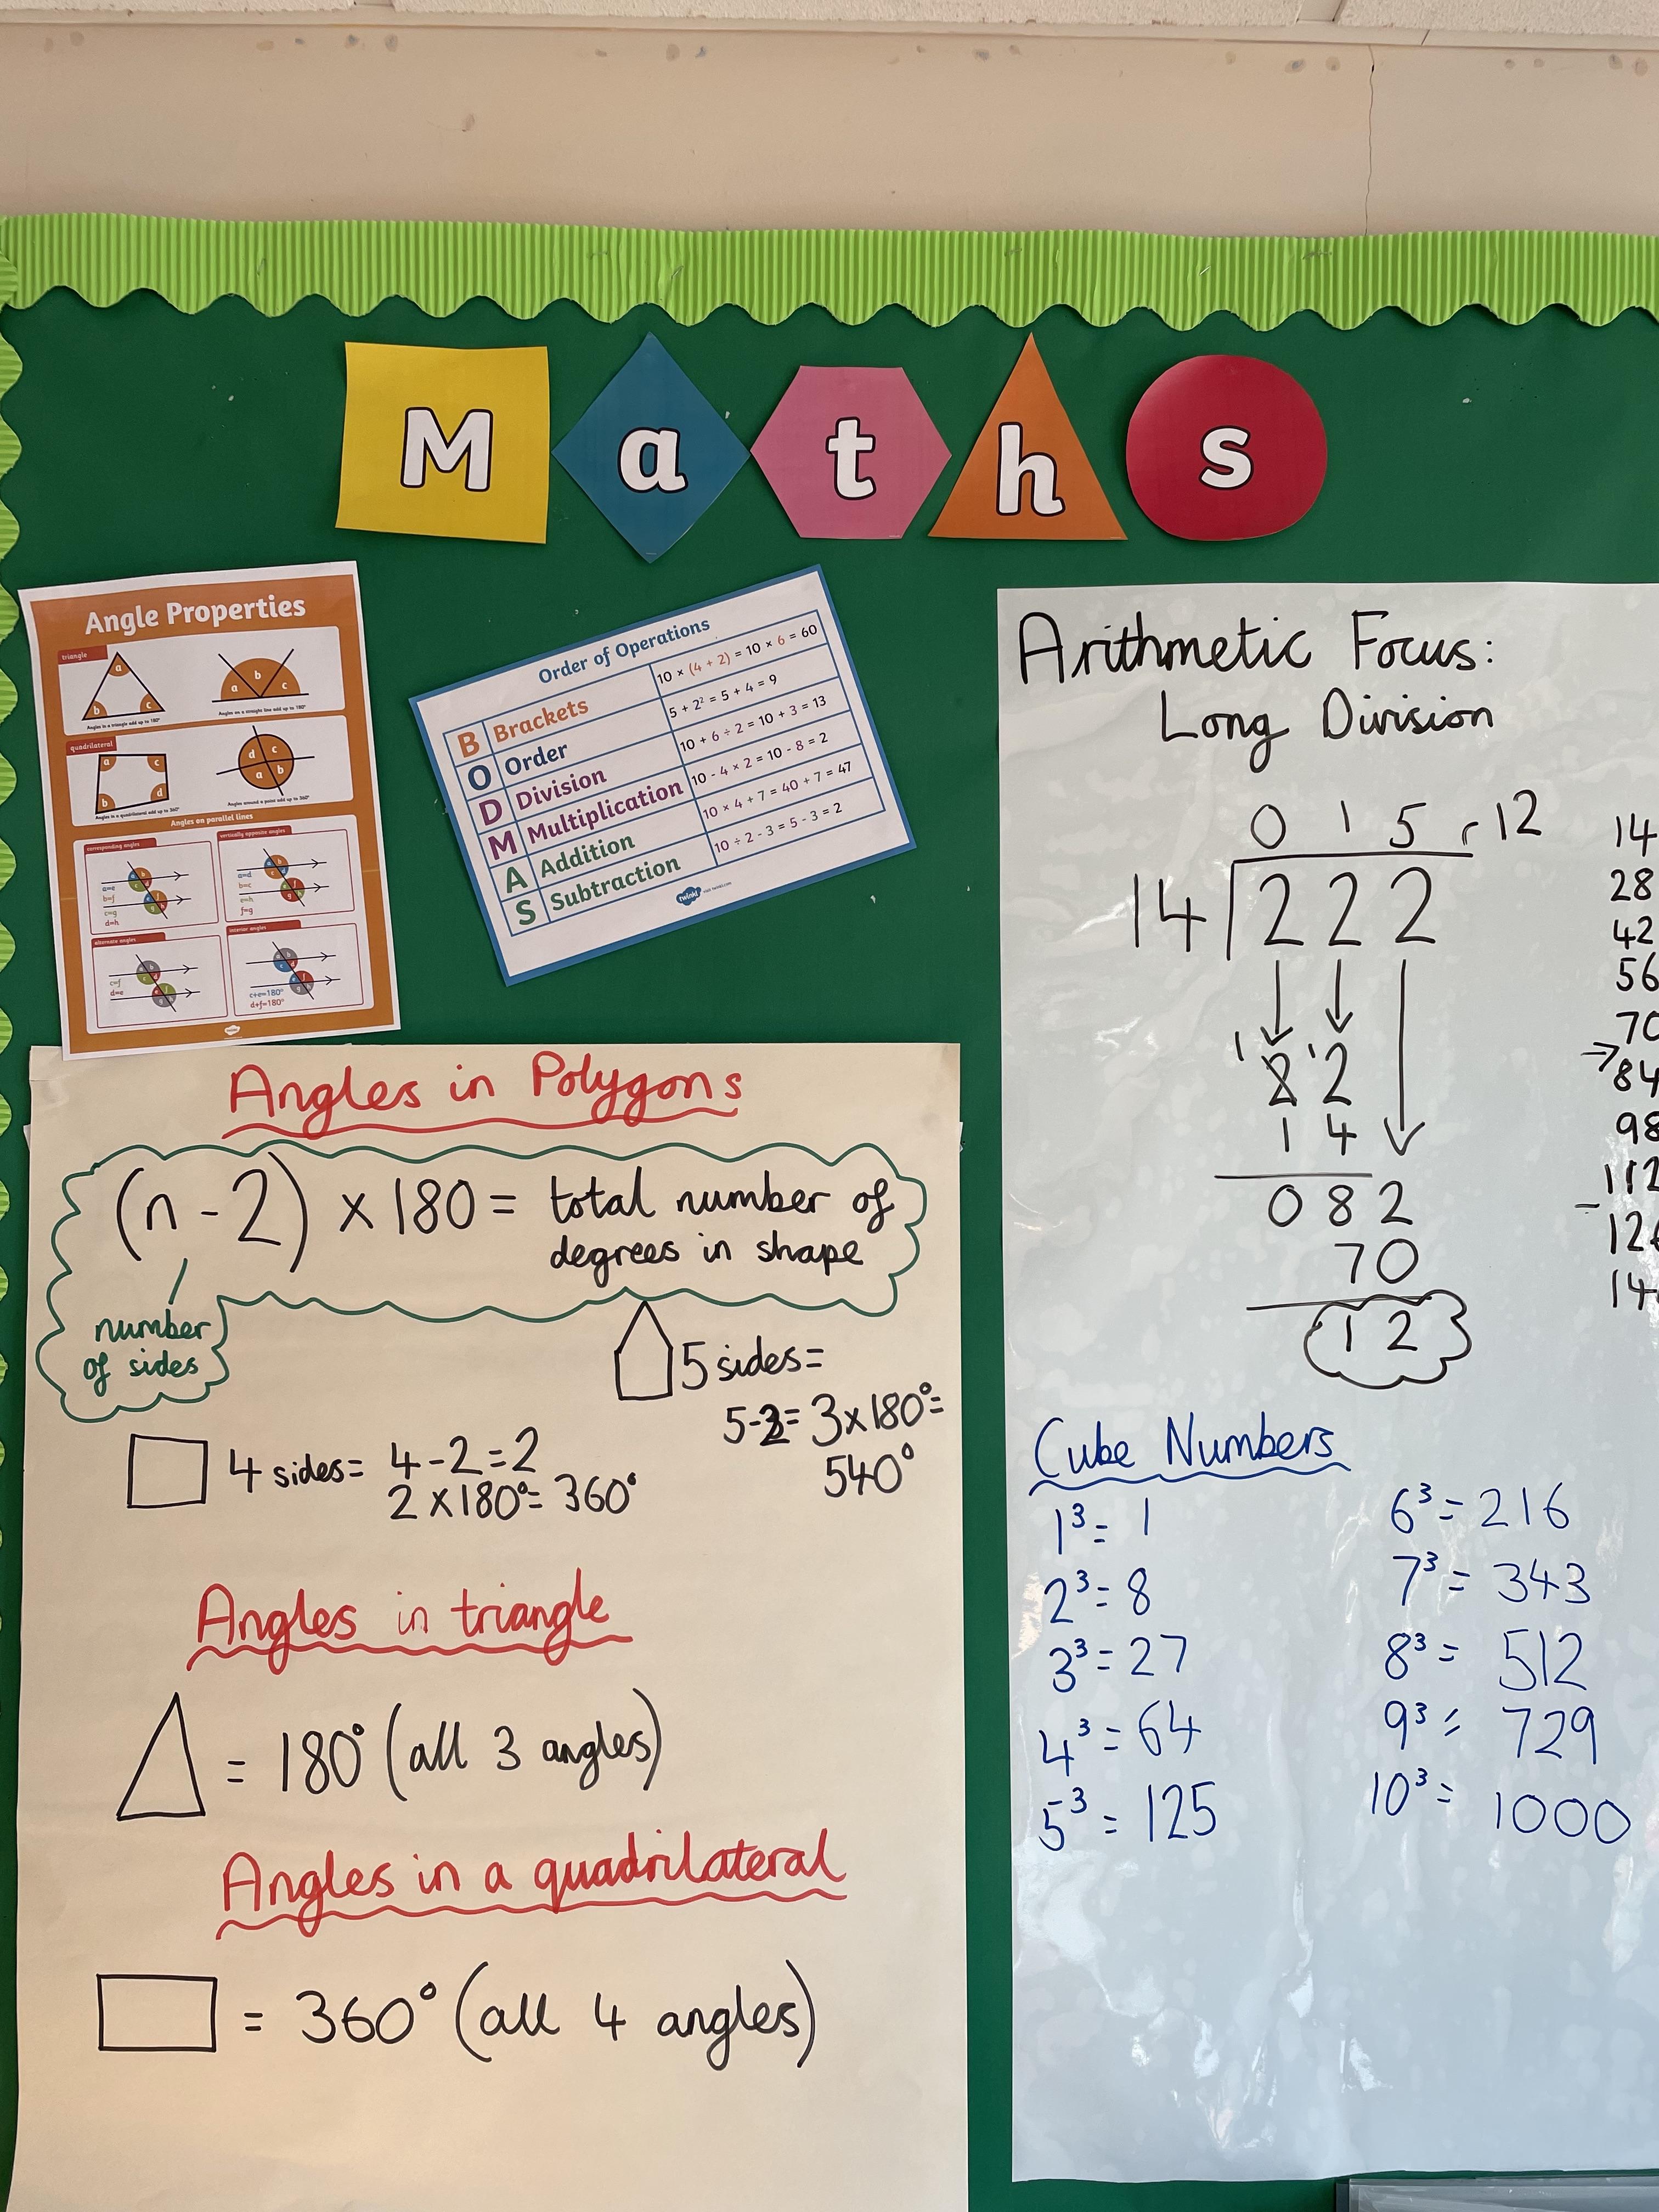 Maths
Angle Properties
triangle
Angles in a triangle add up to 180°
Angles on a straight line add up to 180°
quadrilateral
Angles in a quadrilateral add up to 360°
Angles around a point add up to 360°
Angles on parallel lines
corresponding angles
a=e
b=f
c=g
d=h
vertically opposite angles
a=d
b=c
e=h
f=g
alternate angles
c=f
d=e
interior angles
c+e=180°
d+f=180°
twinkl
Order of Operations
B Brackets 10 × (4 + 2) = 10 × 6 = 60
O Order 5 + 2² = 5 + 4 = 9
D Division 10 + 6 ÷ 2 = 10 + 3 = 13
M Multiplication 10 - 4 × 2 = 10 - 8 = 2
A Addition 10 × 4 + 7 = 40 + 7 = 47
S Subtraction 10 ÷ 2 - 3 = 5 - 3 = 2
twinkl visit twinkl.com
Angles in Polygons
(n - 2) × 180 = total number of
degrees in shape
number
of sides
5 sides=
5-2= 3×180°=
540°
4 sides= 4-2=2
2×180°= 360°
Angles in triangle
= 180° (all 3 angles)
Angles in a quadrilateral
= 360° (all 4 angles)
Arithmetic Focus:
Long Division
0 1 5 r 12
14 222
1 2 1 2
1 4
0 8 2
7 0
1 2
14
28
42
56
70
→ 84
98
112
12
14
Cube Numbers
1³= 1
2³= 8
3³= 27
4³= 64
5³= 125
6³= 216
7³= 343
8³= 512
9³= 729
10³= 1000